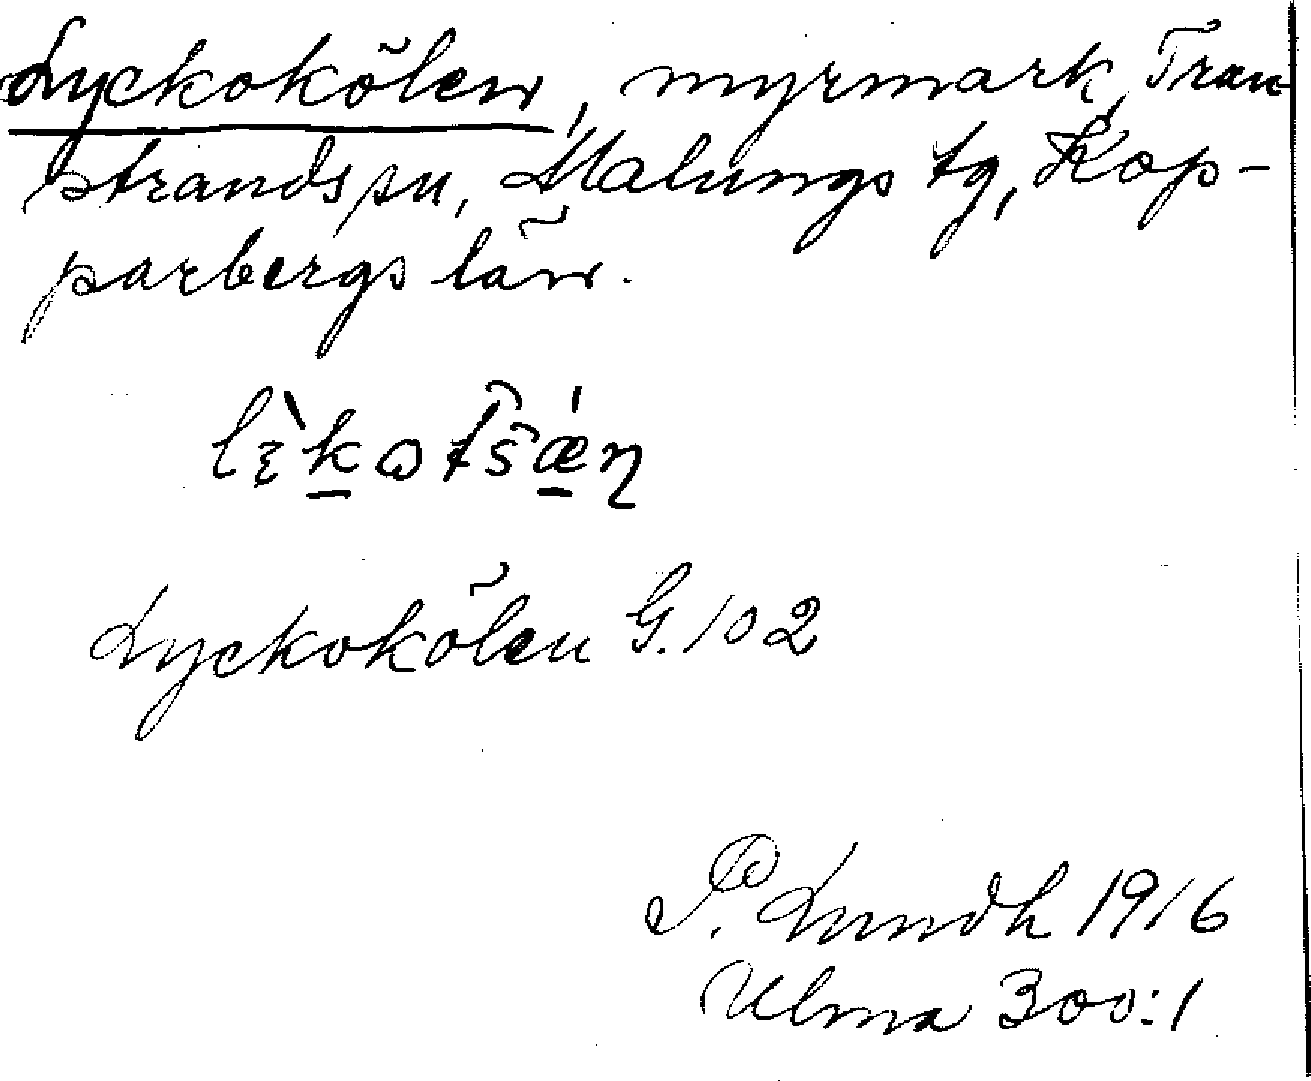 Lyckokölen, myrmark, Tran
strands sn, Malungs tg, Kop-
parbergs län.
Lyckokölen G. 102
P. Lundh 1916
Ulma 300:1